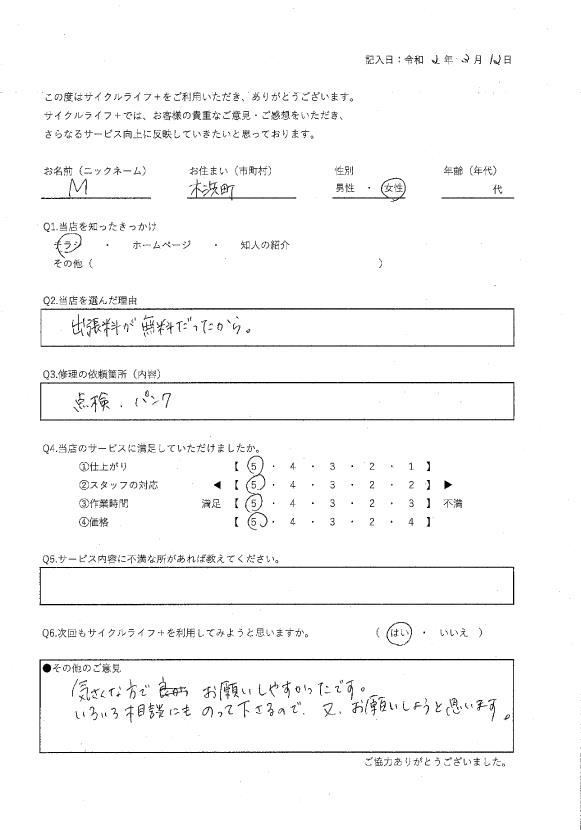 記入日：令和 2 年 2 月 12 日
この度はサイクルライフ＋をご利用いただき、ありがとうございます。
サイクルライフ＋では、お客様の貴重なご意見・ご感想をいただき、
さらなるサービス向上に反映していきたいと思っております。
お名前（ニックネーム） お住まい（市町村） 性別 年齢（年代）
M 木浜町 男性 ・ 女性 代
Q1.当店を知ったきっかけ
チラシ ・ ホームページ ・ 知人の紹介
その他（ ）
Q2.当店を選んだ理由
出張料が無料だったから。
Q3.修理の依頼箇所（内容）
点検、パンク
Q4.当店のサービスに満足していただけましたか。
①仕上がり 【 5 ・ 4 ・ 3 ・ 2 ・ 1 】
②スタッフの対応 ◀ 【 5 ・ 4 ・ 3 ・ 2 ・ 2 】 ▶
③作業時間 満足 【 5 ・ 4 ・ 3 ・ 2 ・ 3 】 不満
④価格 【 5 ・ 4 ・ 3 ・ 2 ・ 4 】
Q5.サービス内容に不満な所があれば教えてください。
Q6.次回もサイクルライフ＋を利用してみようと思いますか。 （ はい ・ いいえ ）
●その他のご意見
気さくな方で お願いしやすかったです。
いろいろ相談にものって下さるので、又、お願いしようと思います。
ご協力ありがとうございました。